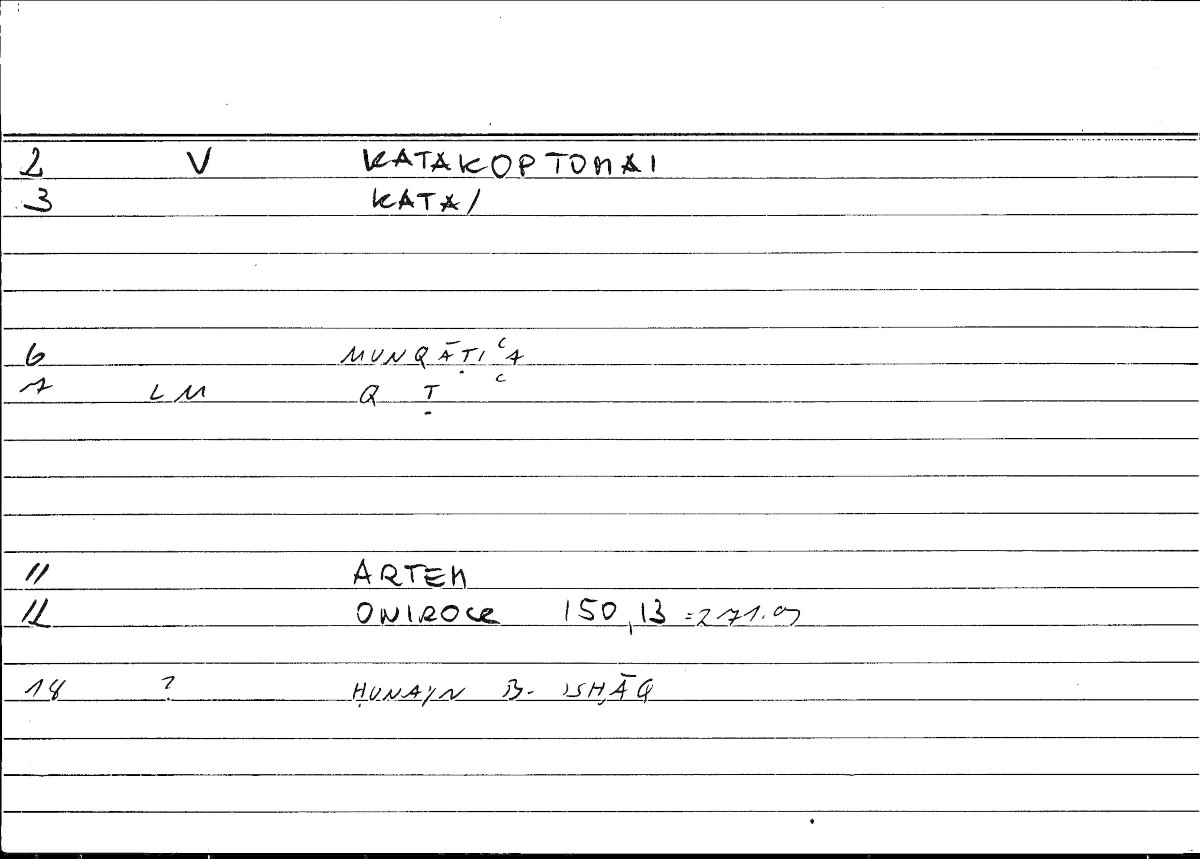 2 V KATAKOPTOMAI
3 KATA/
6 MUNQĀṬIʿA
7 LM Q Ṭ ʿ
11 ARTEM
12 ONIROCR 150,13 =271.9
18 ? ḤUNAYN B. ISḤĀQ